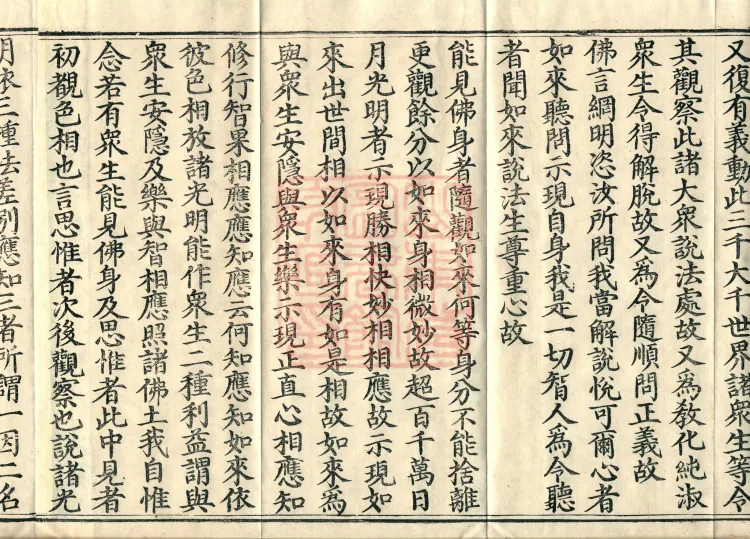 又復有義動此三千大千世界諸衆生等令
其觀察此諸大衆說法處故又爲教化純淑
衆生令得解脫故又爲令隨順問正義故
佛言網明恣汝所問我當解說悅可爾心者
如來聽問示現自身我是一切智人爲令聽
者聞如來說法生尊重心故
能見佛身者隨觀如來何等身分不能捨離
更觀餘分以如來身相微妙故超百千萬日
月光明者示現勝相快妙相相應故示現如
來出世間相以如來身有如是相故如來爲
與衆生安隱與衆生樂示現正直心相應知
修行智果相應應知應云何知應知如來依
彼色相放諸光明能作衆生二種利益謂與
衆生安隱及樂與智相應照諸佛土我自惟
念若有衆生能見佛身及思惟者此中見者
初觀色相也言思惟者次後觀察也說諸光
月依三種法差別應知三者所謂一因二名